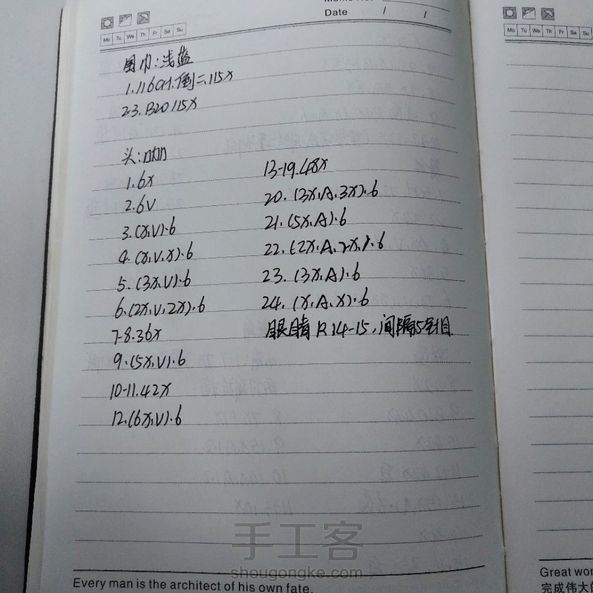 Date / /
Mo Tu We Th Fr Sa Su
围巾:浅蓝
1.116CH.倒二.115X
2-3.B20 115X
头:肉
1.6X
2.6V
3.(X,V)·6
4.(X,V,X)·6
5.(3X,V)·6
6.(2X,V,2X)·6
7-8.36X
9.(5X,V)·6
10-11.42X
12.(6X,V)·6
13-19.48X
20.(3X,A,3X)·6
21.(5X,A)·6
22.(2X,A,2X)·6
23.(3X,A)·6
24.(X,A,X)·6
眼睛R14-15,间隔5针目
手工客
shougongke.com
Every man is the architect of his own fate.
Mo Tu We Th Fr Sa Su
Great
完成伟大的